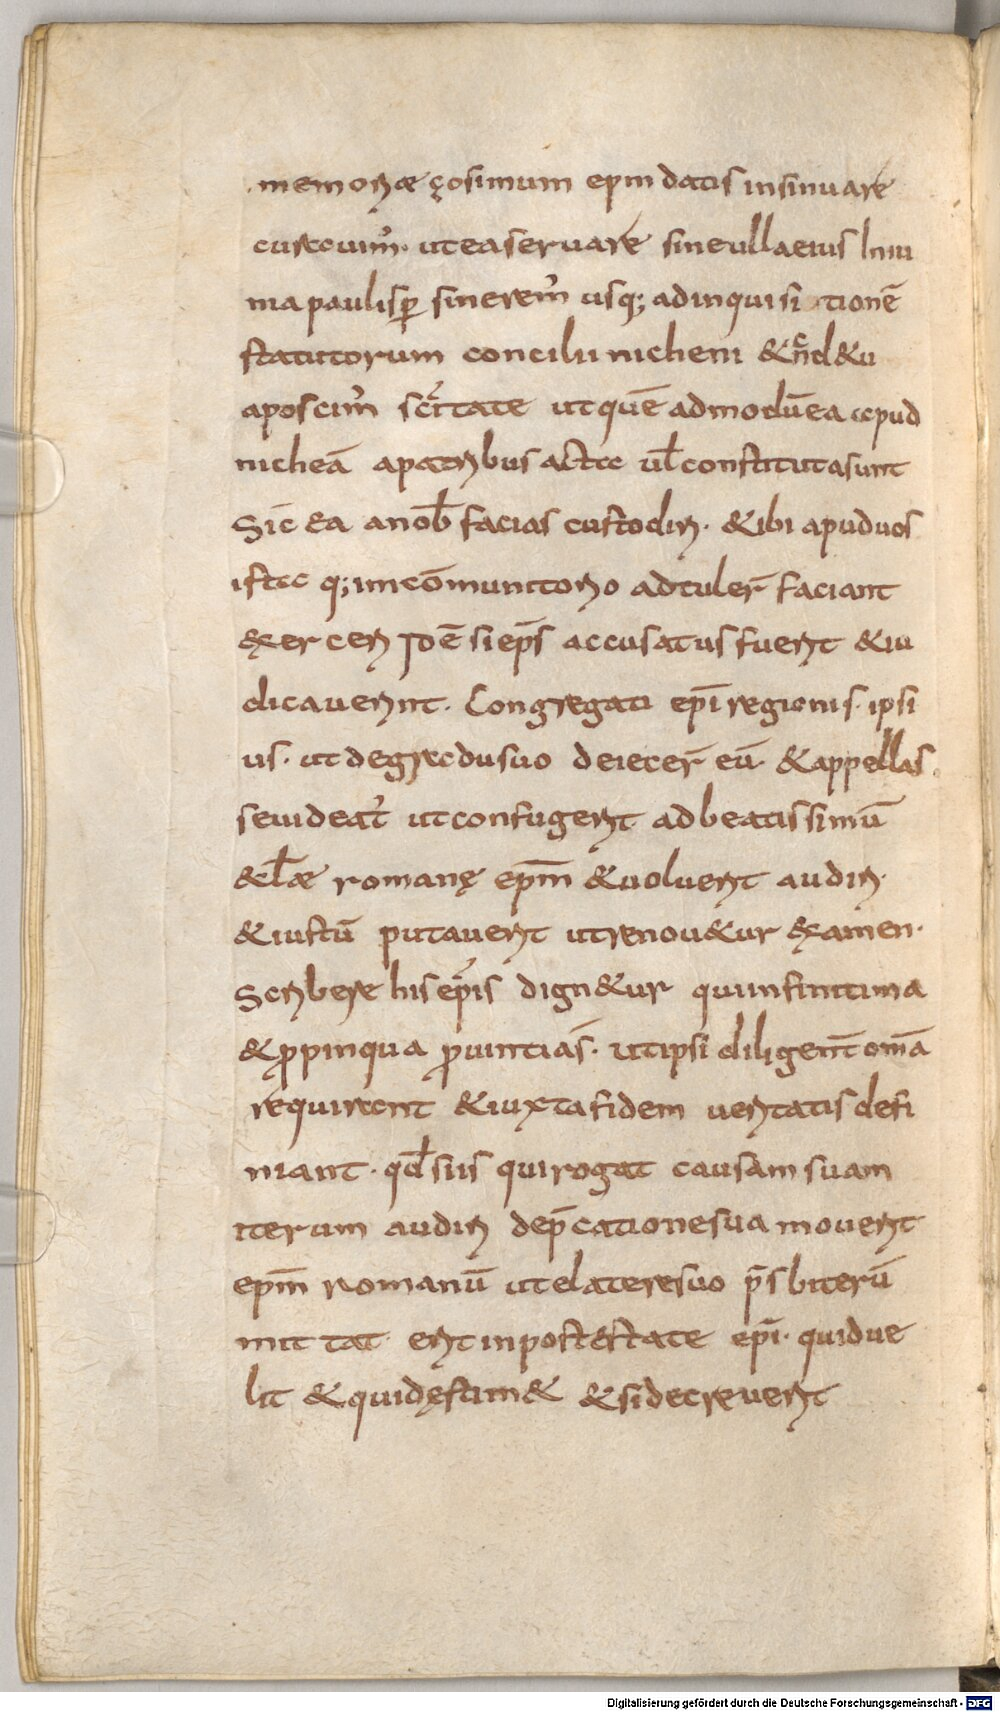 memoriæ çosimum epm datis insinuare
curavim᷒· ut ea servare sine ulla eius iniu
ria paulisꝑ sinerem᷒ usq; ad inquisi tionē
statutorum concilii nicheni & n̄c d& u
aposcim᷒ scīt̃ate ut quē admodū ea apud
nicheā a patribus acta ul̄ constituta sunt
Sic̄ & a a nob̄ facias custodiri· & ibi apud uos
ista q; in cōmunitorio adtuler̄ faciant
exerceri Idē si ep̄s accusatus fuerit & iu
dicaverint· Congregati ep̄i regionis· ipsi
us· ut de gradu suo deiecer̄ eū· & appellas
se uideat᷒ ut confugerit ad beatissimū
&cl̄æ romanę ep̄m & voluerit audiri·
& iustū putaverit ut renov&ur examen·
Scribere his ep̄is dign&ur qui in finitima
& ꝓpinqua ꝓuintia s̄· ut ipsi diligent̄ om̄a
requirant & iuxta fidem ueritatis defi
niant· qd̄ si is qui rogat causam suam
iterum audiri dep̄catione sua moverit
ep̄m romanū ut e latere suo p̄sbiterū
mittat· erit in postestate ep̄i· quid ue
lit & quid ęstim& & si decreverit
Digitalisierung gefördert durch die Deutsche Forschungsgemeinschaft - DFG